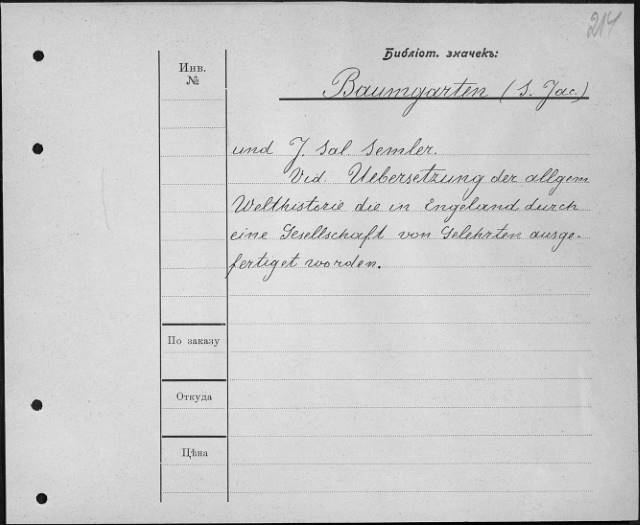 214
Библіот. значекъ:
Инв.
№
Baumgarten (S. Jac.)
und J. Sal. Semler.
Vid. Uebersetzung der allgem
Welthistorie die in Engeland durch
eine Gesellschaft von Gelehrten ausge-
fertiget worden.
По заказу
Откуда
Цѣна